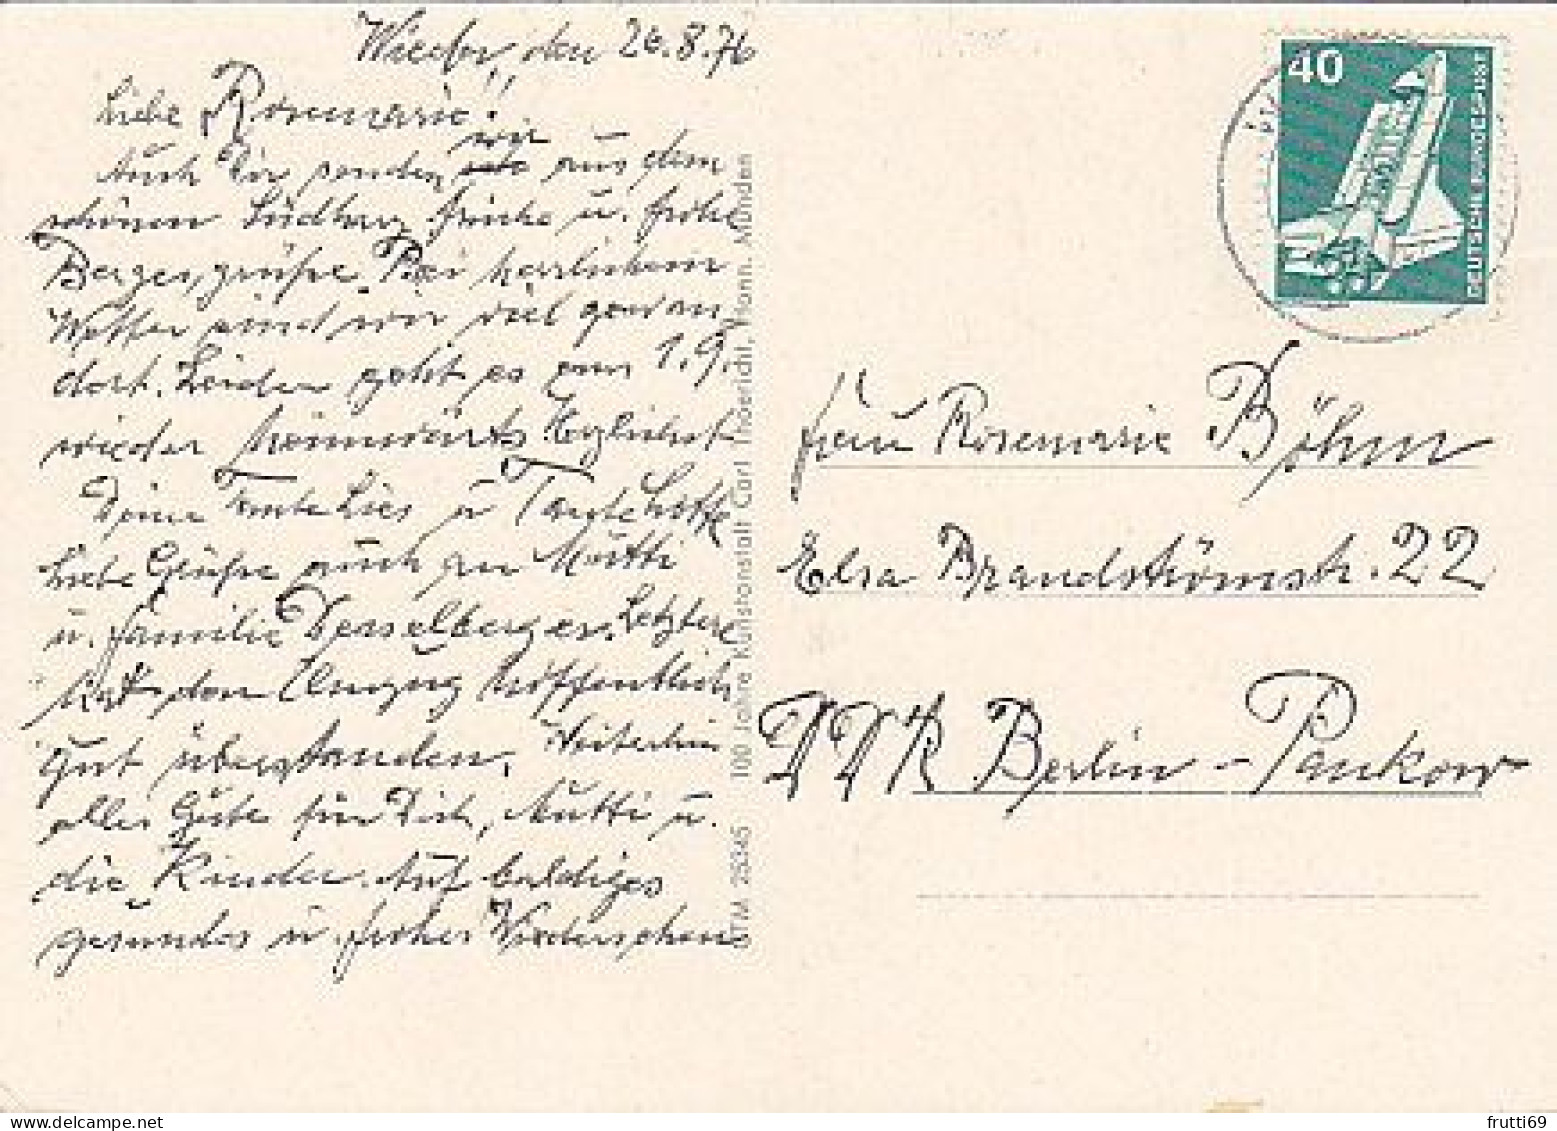 Wieda, den 26.8.76
Liebe Rosemarie!
Auch Dir senden wir aus dem
schönen Südharz frische u. frohe
Bergesgrüße. Bei herrlichem
Wetter sind wir viel gewan-
dert. Leider geht es am 1.9.
wieder heimwärts. Herzlichst
Deine Tante Lies u Tante Lotte
Liebe Grüße auch an Mutti
u. Familie Desselberger. Letztere
hat den Umzug hoffentlich
gut überstanden. Weiterhin
alles Gute für Dich, Mutti u.
die Kinder. Auf baldiges
gesundes u. frohes Wiedersehen
100 Jahre Kunstanstalt Carl Thoericht, Hann. Münden
25345
40
DEUTSCHE BUNDESPOST
Frau Rosemarie Böhm
Elsa Brandströmstr. 22
DDR Berlin-Pankow
frutti69